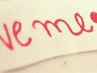 ve me